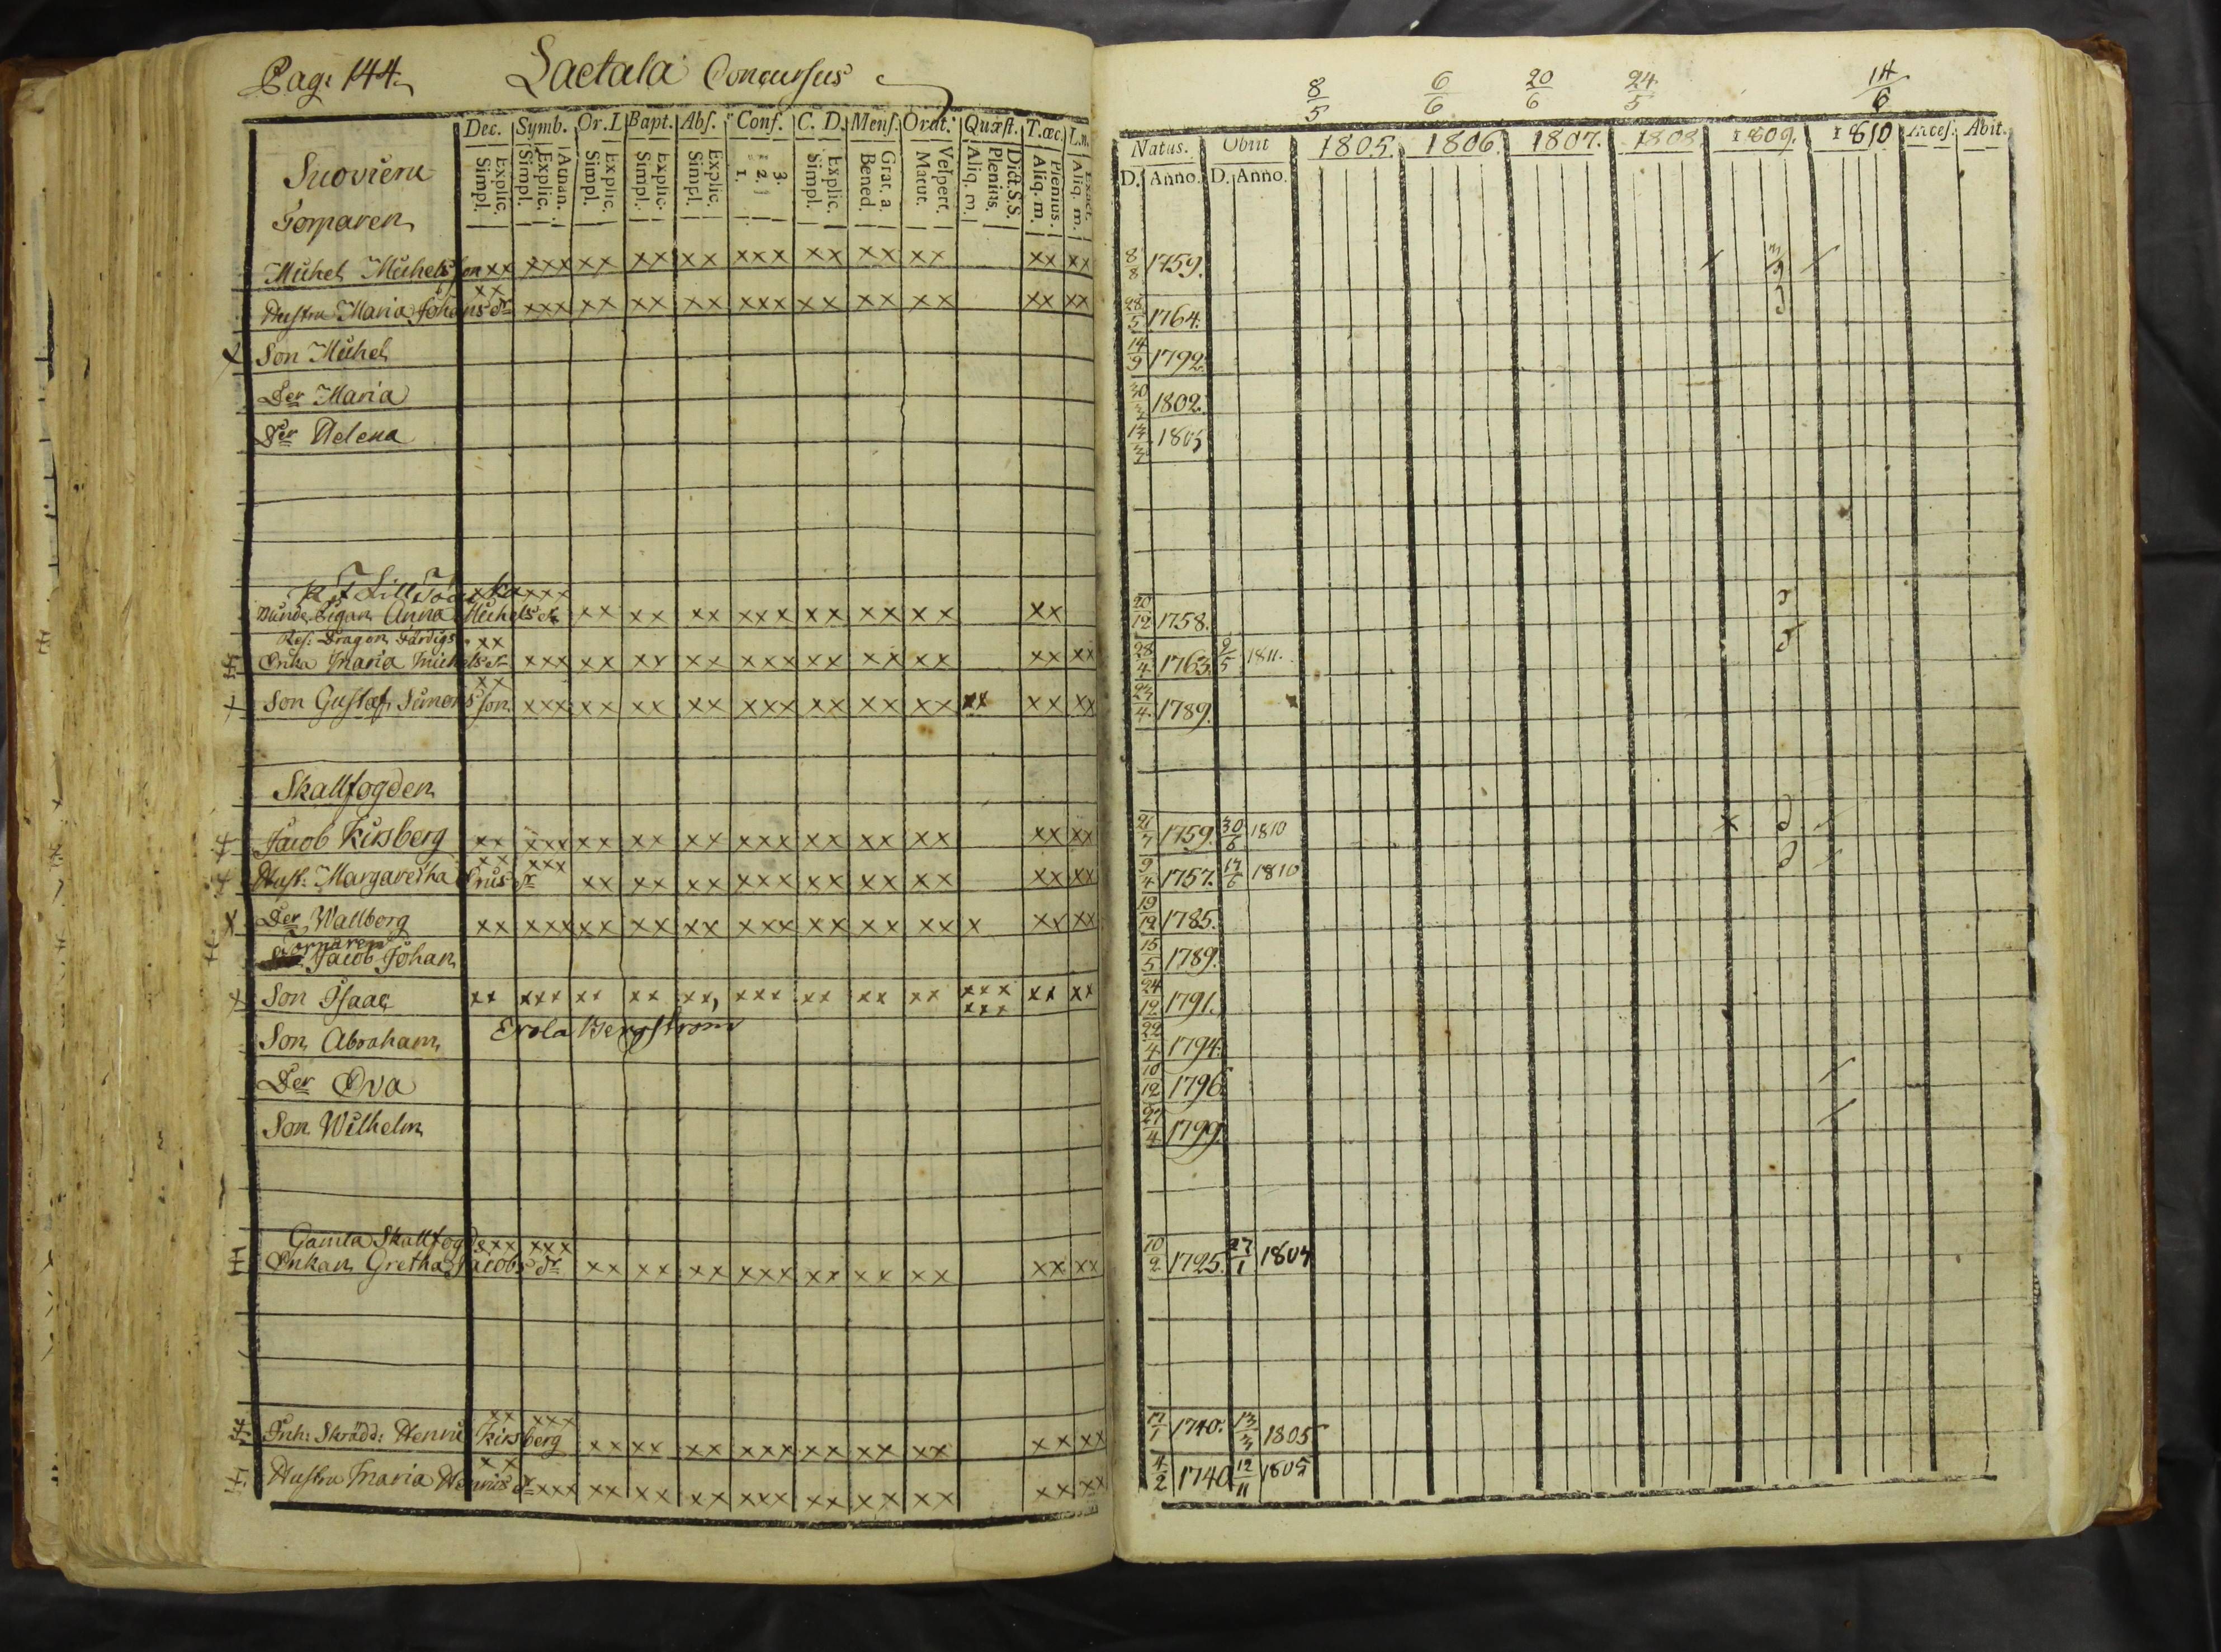 Pag: 144. Laetala Concursus
Dec. Symb. Or. D. Bapt. Abs. Conf. C. D. Mens. Orat. Quæst. T. œc. L. n.
Explic. Simpl. Athan. Explic. Simpl. Explic. Simpl. Explic. Simpl. Explic. Simpl. 3. 2. 1. Explic. Simpl. Grat. a. Bened. Vespert. Matut. Dict. S. S. Plenius. Aliq. m. Plenius. Aliq. m. Exact. Aliq. m.
Suovieru
Torparen
Michel Michelsson xx xxx xx xx xx xxx xx xx xx xx xx
xx
Hustru Maria Johansdr xxx xx xx xx xxx xx xx xx xx xx
x Son Michel
Der Maria
Der Helena
xx xxx
Anna Michelsdr xx xx xx xxx xx xx xx xx
Ref. Dragon Färdigs xx
Enka Maria Michelsdr xxx xx xx xx xxx xx xx xx xx xx
xx
x Son Gustaf Simonsson xxx xx xx xx xxx xx xx xx xx xx xx
Skallfogden
Jacob Kirsberg xx xxx xx xx xx xxx xx xx xx xx xx
xx xxx
Hust: Margaretha dr xx xx xx xxx xx xx xx xx xx
x Der Wallborg xx xxx xx xx xx xxx xx xx xx x xx xx
Jacob Johan
x Son Isaac xx xxx xx xx xx, xxx xx xx xx xxx xx xx
xxx
Son Abraham Bergstrom
Der Eva
Son Wilhelm
Gamla Skallfogde xx xxx
Enkan Gretha Jacobsdr xx xx xx xxx xx xx xx xx xx
xx xxx
Inh: Skrädd: Henric Kirsberg xx xx xx xxx xx xx xx xx xx
xx
Hustru Maria Henricsdr xxx xx xx xx xxx xx xx xx xx xx
8/5 6/6 20/6 24/5 14/6
Natus. Obiit 1805. 1806. 1807. 1808. 1809. 1810 Acces. Abit.
D. Anno. D. Anno.
8/8 1759.
28/5 1764.
14/9 1792.
30/3 1802.
1805
20/12 1758.
28/4 1763. 9/5 1811.
23/4 1789.
21/7 1759. 30/6 1810
9/4 1757. 17/6 1810
19/12 1785.
15/5 1789.
24/12 1791.
22/4 1794.
10/12 1796.
27/4 1799.
10/2 1725. 27/1
17/1 1740. 13/3 1805
4/2 1740 12/11 1805